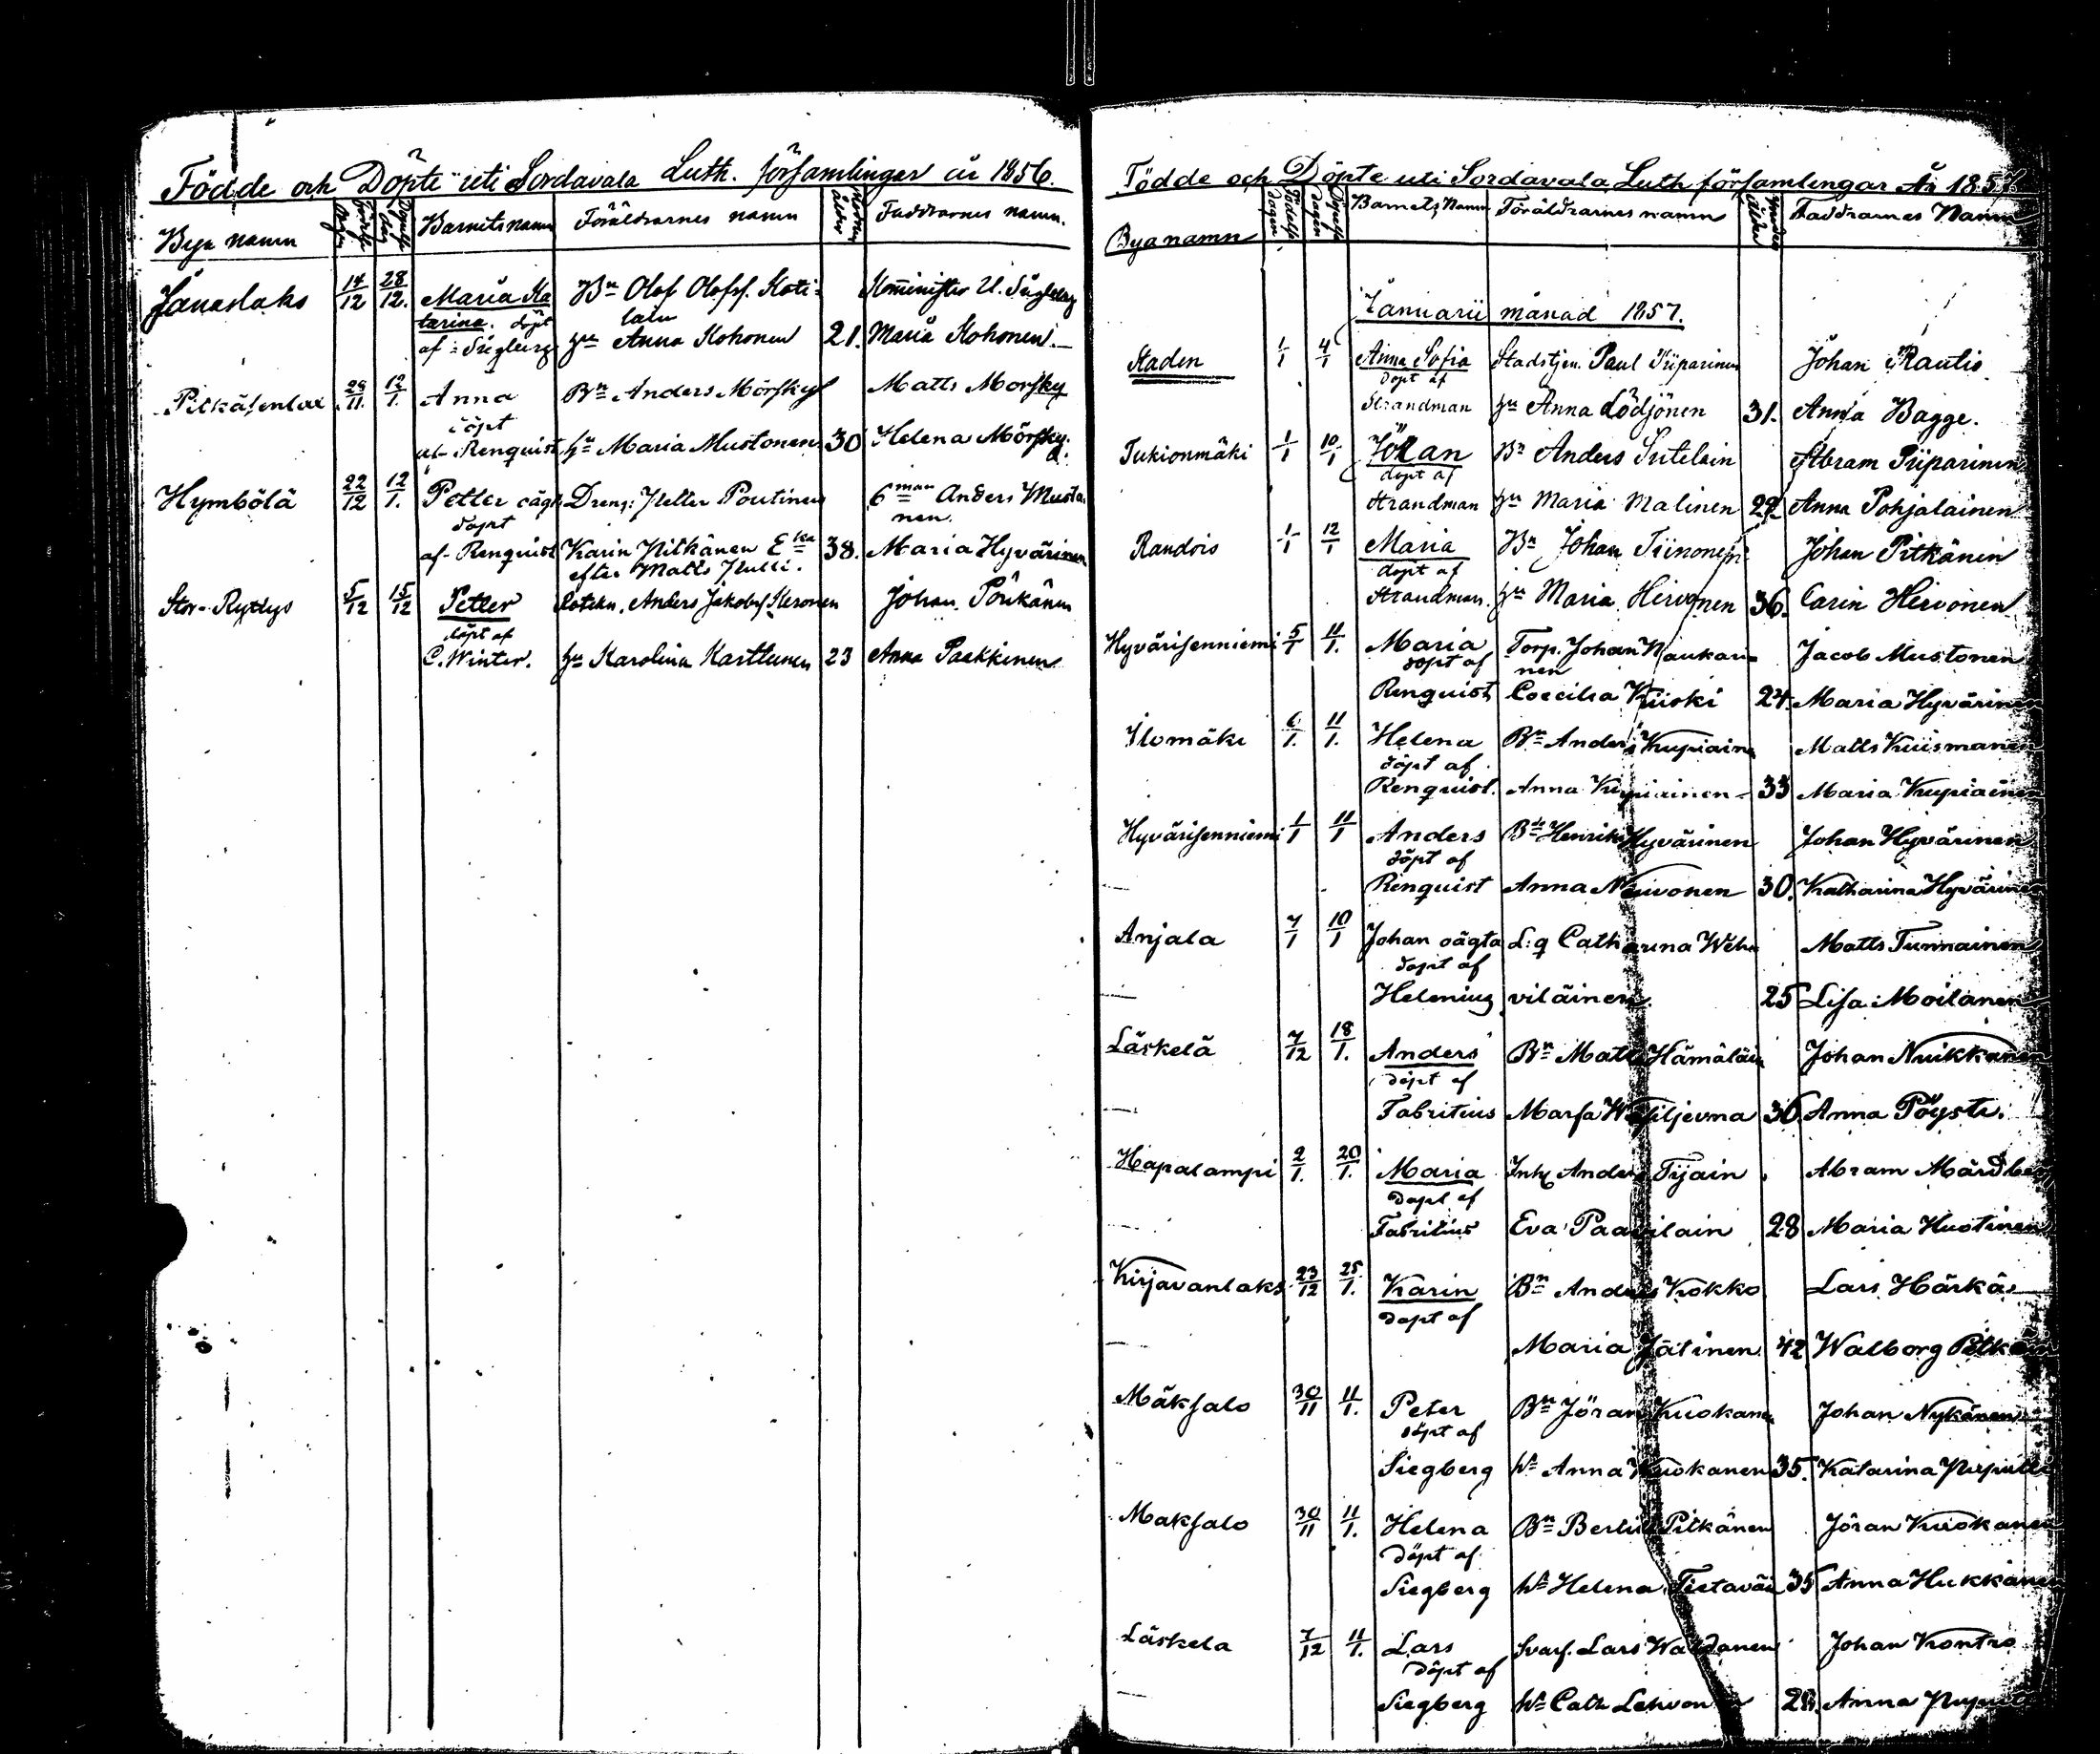 Födde och Döpte uti Sordavala Luth. församlingar år 1856.
Bya namn Födelse Dagen Döpelse Dag Barnets namn Föräldrarnes namn Modrens ålder Faddrarnes namn.
Janaslaks 14/12 28/12. Maria Ka Bn Olof Olofss. Koti= Kominister U. Siegberg
tarina. döpt lain
af Siegberg hu Anna Kohonen 21. Maria Kohonen.
Pitkäsenlax 29/11. 12/1. Anna Bn Anders Mörsky Matts Morsky
döpt
af Renquist hu Maria Mustonen 30 Helena Mörsky.
Hymbölä 22/12 12/1. Petter oägt Dreng: Petter Poutinen 6man Anders Musto
döpt nen.
af Renquist Karin Pitkänen Eka 38. Maria Hyvärinen
efter Matts
Stor-Rytlys 5/12 15/12 Petter Rotekn. Anders Jakobss. Ikronen Johan Pöukänen
döpt af
C. Winter. hu Karolina Karttunen 23 Anna Paekkinen
Födde och Döpte uti Sordavala Luth församlingar År 1857
Byanamn Födelse dagen Döpelse dagen Barnets Namn Föräldrarnes namn Ålder Faddrarnes Namn
Januarii månad 1857.
Staden 1/1 4/1 Anna Sofia Stadstjen. Paul Piiparinen Johan Rautio
döpt af
Strandman hu Anna Lödjönen 31. Anna Bagge.
Tukionmäki 1/1 10/1 Johan Bn Anders Sutelain Abram Piiparinen
döpt af
Strandman hu Maria Malinen 22 Anna Pohjalainen
Randois 1/1 12/1 Maria Bn Johan Tiinonen Johan Pitkänen
döpt af
Strandman. hu Maria Hirvonen 36. Carin Hirvonen
Hyvärisenniemi 5/1 11/1. Maria Torp. Johan Naukari= Jacob Mustonen
döpt af nen
Renquist Coecilia Kiiski 24. Maria Hyvärinen
Ilomäki 6/1. 11/1. Helena Bn Anders Kupiain Matts Kuismanen
döpt af
Renquist. Anna Kupiainen 33 Maria Kupiainen
Hyvärisenniemi 1/1 11/1 Anders Bn Henrik Hyvärinen Johan Hyvärinen
döpt af
Renquist Anna Neuvonen 30. Katharina Hyvärinen
Anjala 7/1 10/1 Johan oägta L:q Catharina Wehn Matts Tunnainen
döpt af
Helenius viläinen. 25 Lisa Moilanen
Läskelä 7/12 18/1. Anders Bn Matts Hämäläin Johan Nuikkanen
döpt af
Fabritius Marfa Wasiljevna 36. Anna Pöystr.
Hapalampi 2/1. 20/1. Maria Inh Anders Tijain Abram Mårdber
döpt af
Fabritius Eva Paavilain 28 Maria Huotinen
Kirjavanlaks 23/12 25/1. Karin Bn Anders Kokko Lars Härkä
döpt af
Maria Jätinen 42 Walborg Pitkän
Mäksalo 30/11 11/1. Peter Bn Jöran Kuokanen Johan Nykänen
döpt af
Siegberg hu Anna Kuokanen 35. Katarina
Maksalo 30/11 11/1. Helena Bn Bertil Pitkänen Jöran Kuokanen
döpt af
Siegberg hu Helena Tietaväi 35 Anna Hukkanen
Läskela 7/12 11/1. Lars Svarf. Lars Waldanen Johan Kontro
döpt af
Siegberg hu Cath Lehvonen 28. Anna